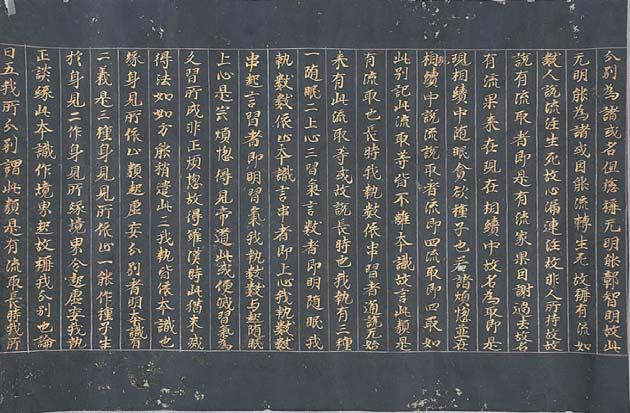 分別為諸或名但隱稱元明能郭智明故此
元明能為諸或因能流轉生死故稱有流如
數人說流注生死故心漏連注故非人所持故
說有流取者即是有流家果因謝過去故名
有流果來在現在相續中故名為取即是
現相續中隨眠貪欲種子也三諸煩惱並在
相續中說流說取者流即四流取即四取如
此別記此流取等皆不離本識故言此類是
有流取也長時我執數依串習者通說无始
來有此流取等或故說長時也我執有三種
一隨眠二上心三習氣言數者即明隨眠我
執數數依止本識言串者即上心我執數數
串起言習者即明習氣我執數數与起隨眠
上心是崇煩惱得見帝道此或便滅習氣為
久習所成非正煩惱故得羅漢時此猶未滅
得法如如方能捎遣此三我執皆依本識也
緣身見所依止類起虛妄分別者明本識有
二義是三種身見見所依止一能作種子生
於身見二作身見所緣境界令起虛妄我執
正談緣此本識作境界起故稱我分別也論
曰五我所分別謂此類是有流取長時我所